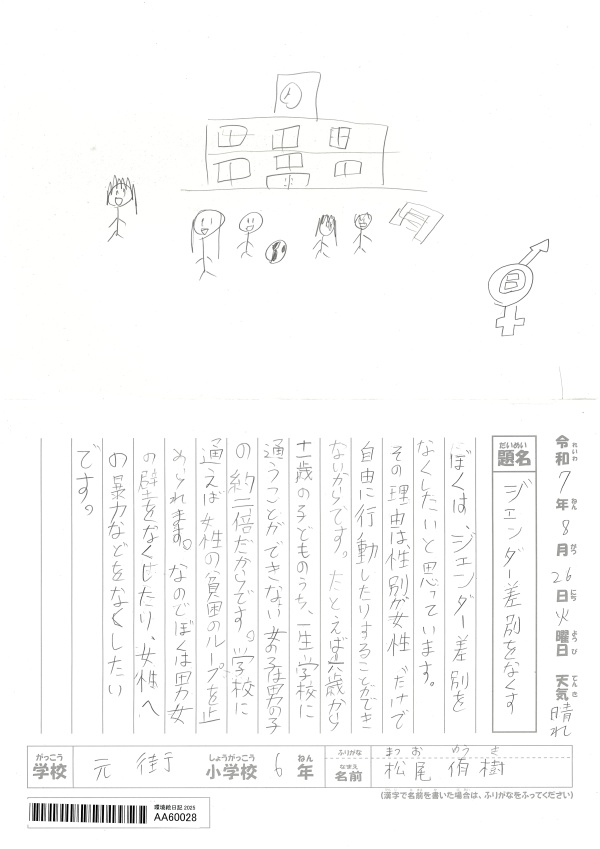 令和7年8月26日火曜日 天気晴れ
題名 ジェンダー差別をなくす
ぼくは、ジェンダー差別を
なくしたいと思っています。
その理由は、性別が女性だけで
自由に行動したりすることができ
ないからです。たとえば六歳から
十一歳の子どものうち、一生学校に
通うことができない女の子は男の子
の約二倍だからです。学校に
通えば女性の貧困のループを止
められます。なのでぼくは男女
の壁をなくしたり、女性へ
の暴力などをなくしたい
です。
がっこう しょうがっこう ねん ふりがな まつ お ゆう き
学校 元街 小学校 6年 名前 松尾 侑樹
(漢字で名前を書いた場合は、ふりがなをふってください)
環境絵日記2025
AA60028